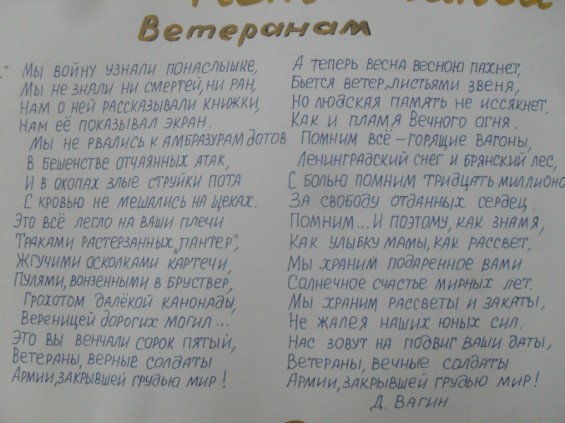 Ветеранам
Мы войну узнали понаслышке,
Мы не знали ни смертей, ни ран,
Нам о ней рассказывали книжки,
Нам её показывал экран.
Мы не рвались к амбразурам дотов
В бешенстве отчаянных атак,
И в окопах злые струйки пота
С кровью не мешались на щеках.
Это всё легло на ваши плечи
Траками растерзанных „пантер",
Жгучими осколками картечи,
Пулями, вонзенными в бруствер,
Грохотом далёкой канонады,
Вереницей дорогих могил...
Это вы венчали сорок пятый,
Ветераны, верные солдаты
Армии, закрывшей грудью мир!
А теперь весна весною пахнет,
Бьется ветер, листьями звеня,
Но людская память не иссякнет,
Как и пламя Вечного огня.
Помним всё – горящие вагоны,
Ленинградский снег и брянский лес,
С болью помним тридцать миллионо
За свободу отданных сердец.
Помним... И поэтому, как знамя,
Как улыбку мамы, как рассвет,
Мы храним подаренное вами
Солнечное счастье мирных лет.
Мы храним рассветы и закаты,
Не жалея наших юных сил.
Нас зовут на подвиг ваши даты,
Ветераны, вечные солдаты
Армии, закрывшей грудью мир!
Д. Вагин